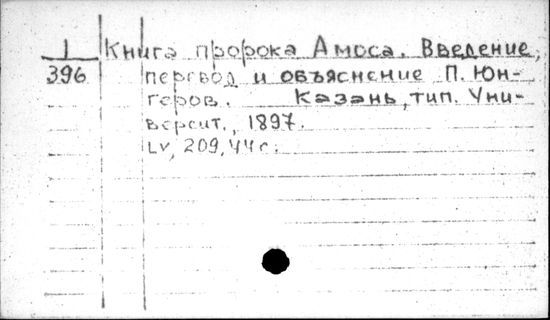 1 Книга пророка Амоса. Введение,
396 перевод и объяснение П. Юн-
геров. Казань, тип. Уни-
версит., 1897.
LV, 209, 44 с.